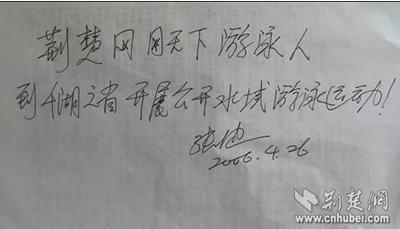 荆楚网网天下游泳人
到千湖之省开展公开水域游泳运动!
2006.4.26
荆楚網
www.cnhubei.com